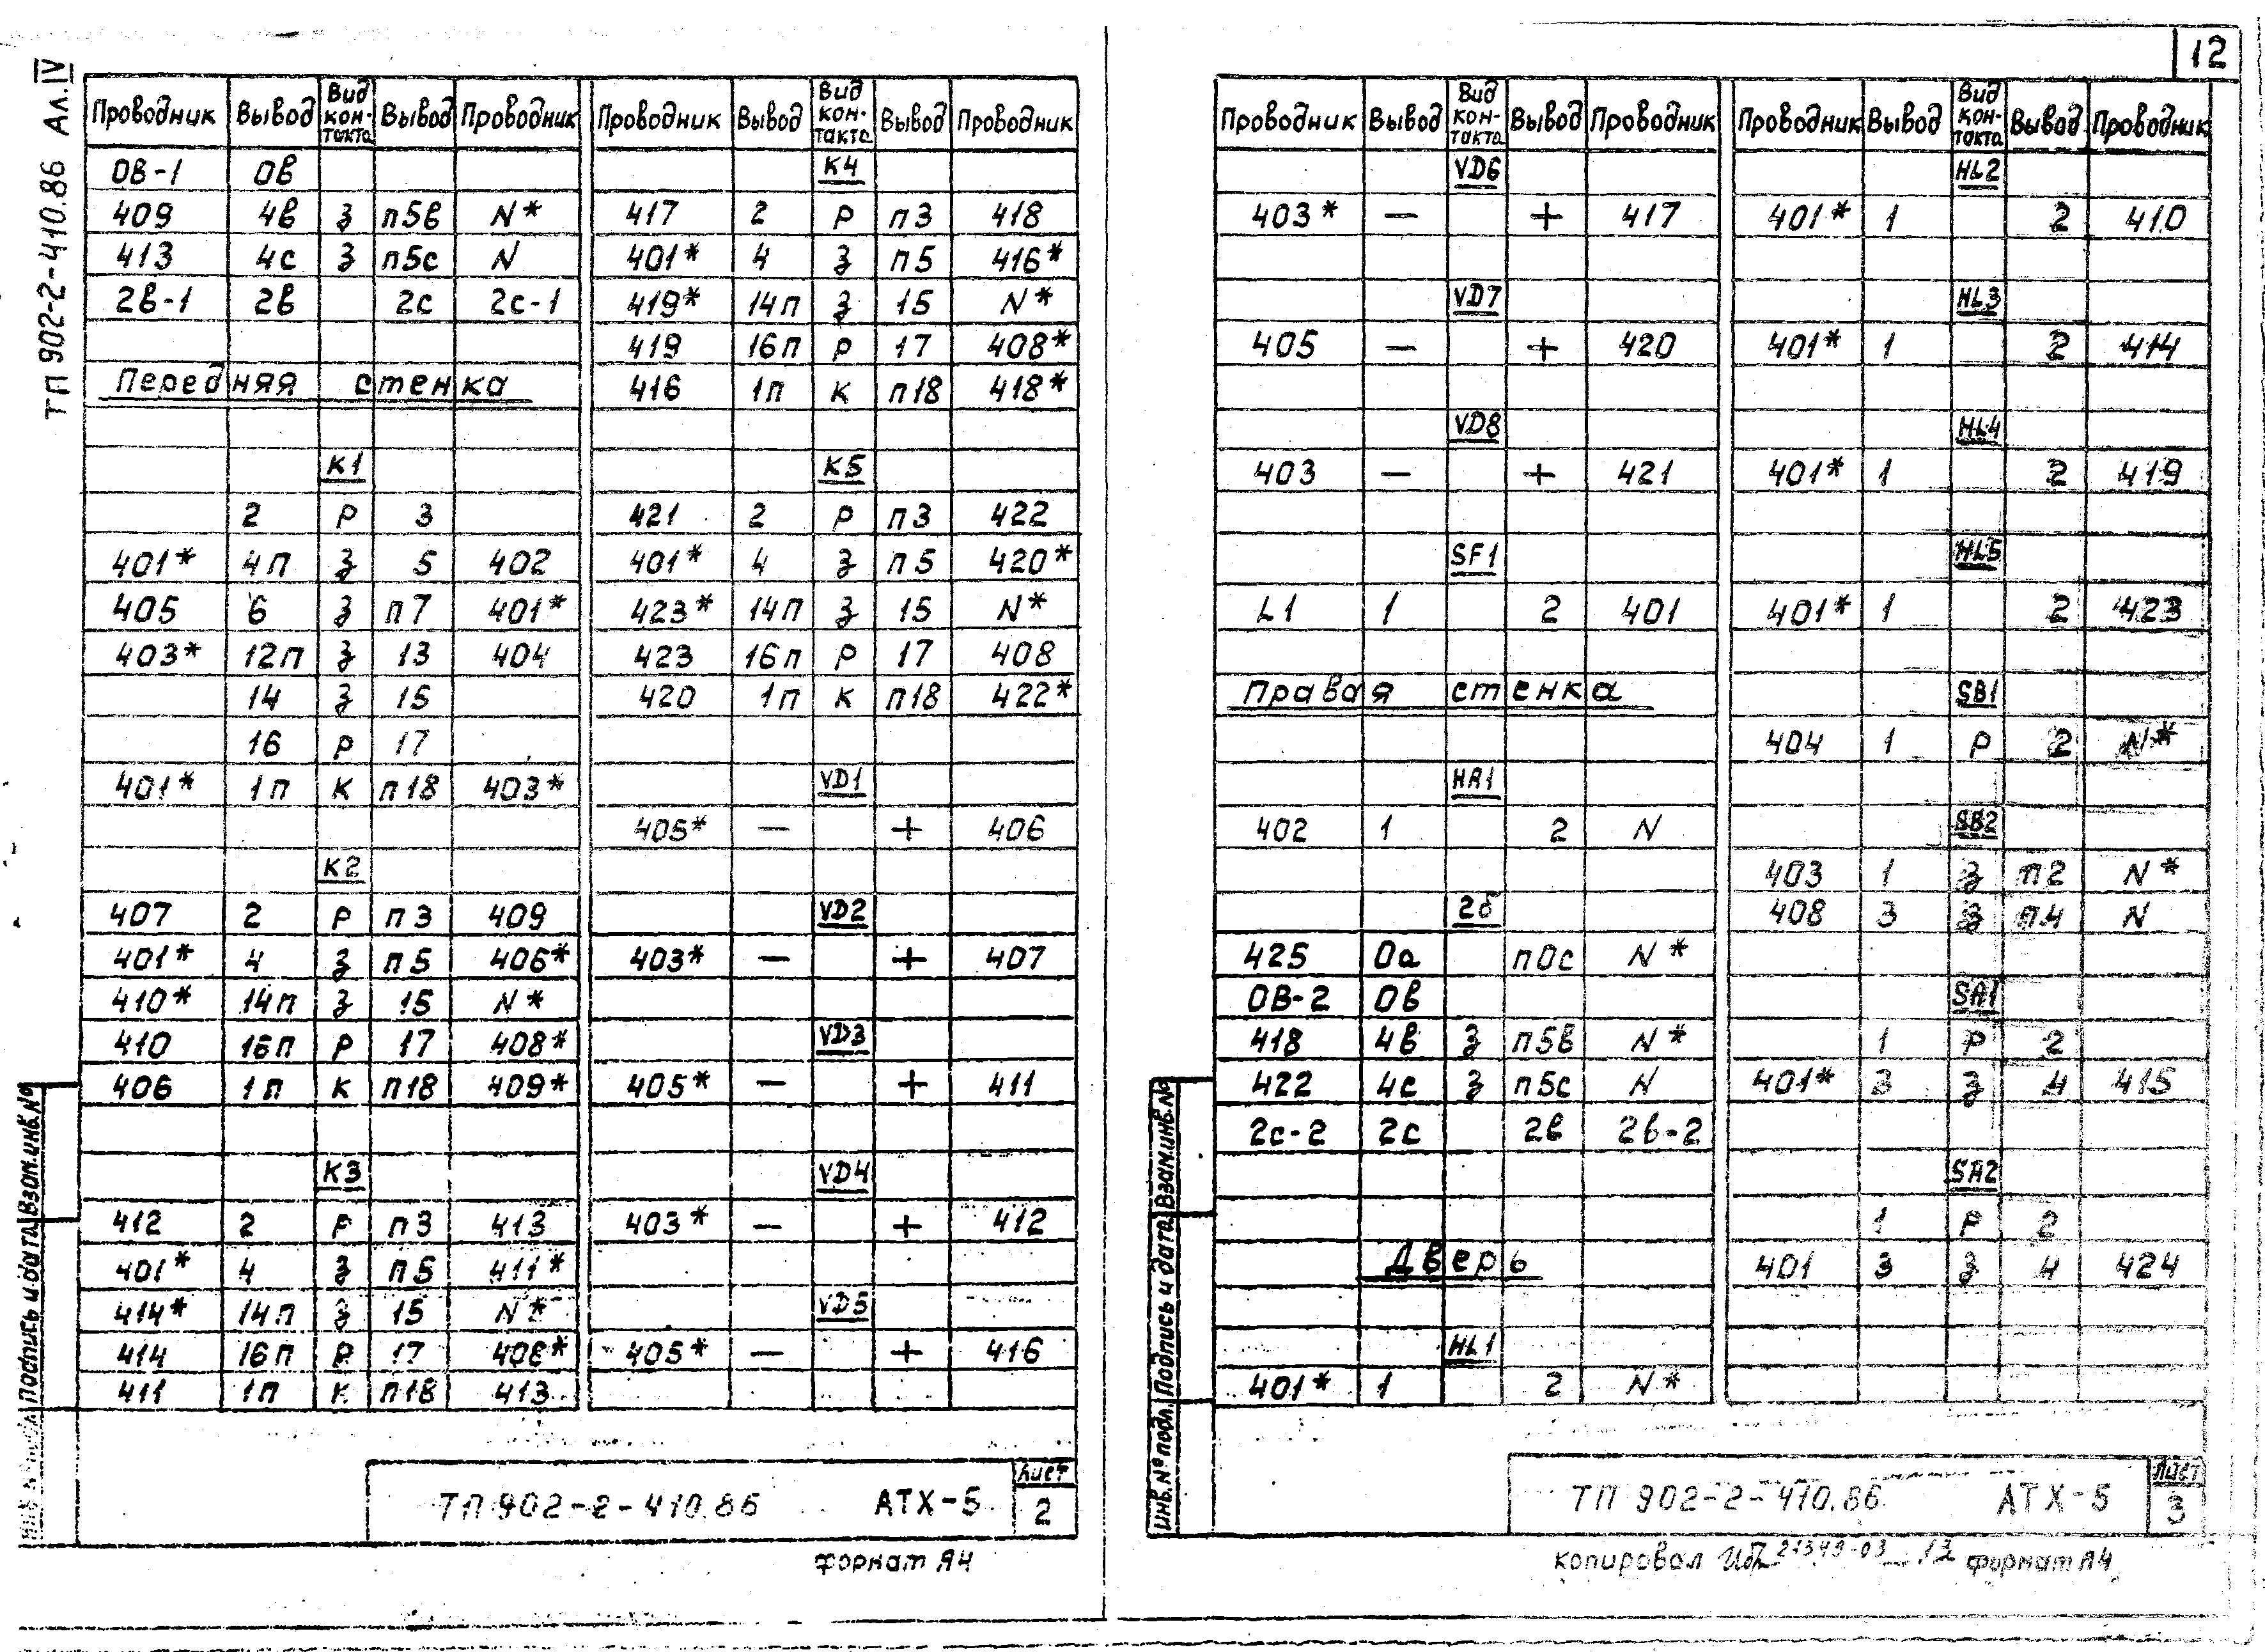 12
ТП 902-2-410.86 Ал.IV
Проводник Вывод Вид контакта Вывод Проводник
0В-1 0в
409 4в З п5в N*
413 4с З п5с N
2в-1 2в 2с 2с-1
Передняя стенка
К1
2 Р 3
401* 4п З 5 402
405 6 З п7 401*
403* 12п З 13 404
14 З 15
16 Р 17
401* 1п К п18 403*
К2
407 2 Р п3 409
401* 4 З п5 406*
410* 14п З 15 N*
410 16п Р 17 408*
406 1п К п18 409*
К3
412 2 Р п3 413
401* 4 З п5 411*
414* 14п З 15 N*
414 16п Р 17 408*
411 1п К п18 413
Проводник Вывод Вид контакта Вывод Проводник
К4
417 2 Р п3 418
401* 4 З п5 416*
419* 14п З 15 N*
419 16п Р 17 408*
416 1п К п18 418*
К5
421 2 Р п3 422
401* 4 З п5 420*
423* 14п З 15 N*
423 16п Р 17 408
420 1п К п18 422*
VD1
405* — + 406
VD2
403* — + 407
VD3
405* — + 411
VD4
403* — + 412
VD5
405* — + 416
Взам.инв.№
Подпись и дата
ТП 902-2-410.86 АТХ-5
Лист
2
формат А4
Проводник Вывод Вид контакта Вывод Проводник
VD6
403* — + 417
VD7
405 — + 420
VD8
403 — + 421
SF1
L1 1 2 401
Правая стенка
НА1
402 1 2 N
2б
425 0а п0с N*
0В-2 0в
418 4в З п5в N*
422 4с З п5с N
2с-2 2с 2в 2в-2
Дверь
HL1
401* 1 2 N*
Проводник Вывод Вид контакта Вывод Проводник
HL2
401* 1 2 410
HL3
401* 1 2 414
HL4
401* 1 2 419
HL5
401* 1 2 423
SB1
404 1 Р 2 N*
SB2
403 1 З п2 N*
408 3 З п4 N
SA1
1 Р 2
401* 3 З 4 415
SA2
1 Р 2
401 3 З 4 424
Взам.инв.№
Подпись и дата
Инв.№ подл.
ТП 902-2-410.86 АТХ-5
Лист
3
копировал 21349-03 13 формат А4